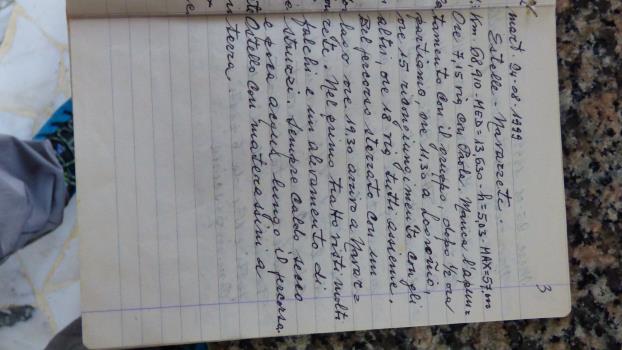 3
mart. 24-08-1999
Estella - Navarrete.
Km. 68,910 - MED = 13,630 - h = 5,03 - MAX = 57,00
Ore 7,15 rip con Paola. Manca l'appun=
tamento con il gruppo, dopo 1/2 ora
partiamo, ore 11,30 a Logroño,
ore 15 ricongiungimento con gli
altri, ore 18 rip tutti assieme.
Bel percorso sterrato con un
lago ore 19,30 arrivo a Navar=
rete. Nel primo tratto visti molti
falchi e un allevamento di
struzzi. Sempre caldo secco
e poca acqua lungo il percorso.
Ostello con materassini a
terra.